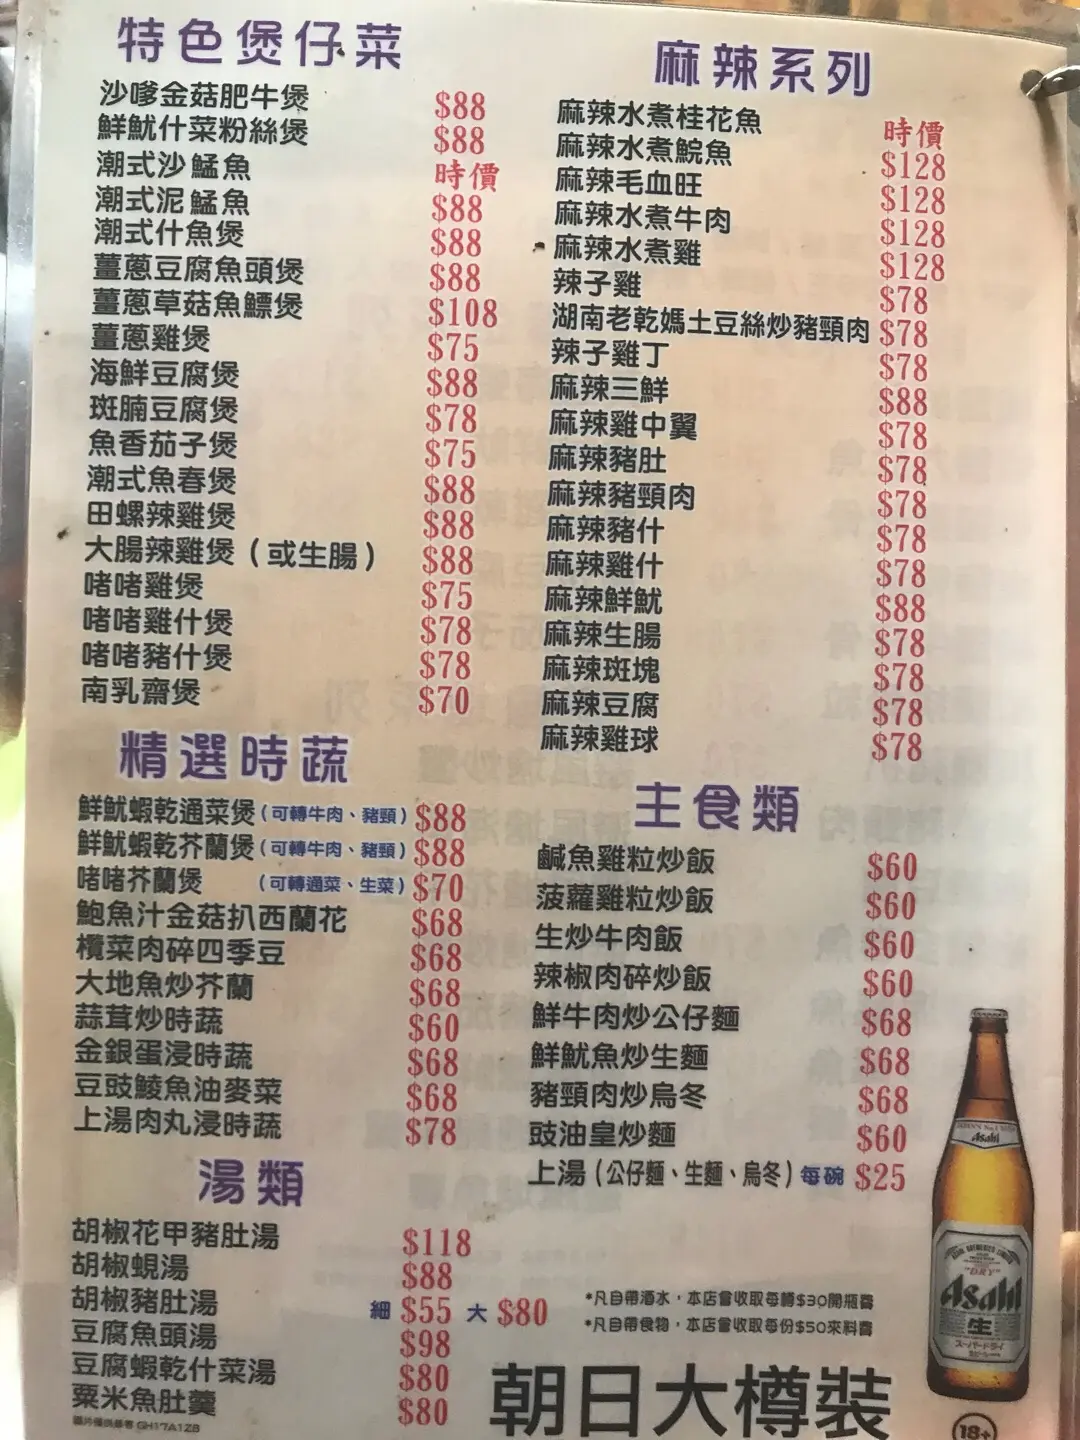 特色煲仔菜
沙嗲金菇肥牛煲 $88
鮮魷什菜粉絲煲 $88
潮式沙鯭魚 時價
潮式泥鯭魚 $88
潮式什魚煲 $88
薑蔥豆腐魚頭煲 $88
薑蔥草菇魚鰾煲 $108
薑蔥雞煲 $75
海鮮豆腐煲 $88
斑腩豆腐煲 $78
魚香茄子煲 $75
潮式魚春煲 $88
田螺辣雞煲 $88
大腸辣雞煲（或生腸） $88
啫啫雞煲 $75
啫啫雞什煲 $78
啫啫豬什煲 $78
南乳齋煲 $70
精選時蔬
鮮魷蝦乾通菜煲（可轉牛肉、豬頸） $88
鮮魷蝦乾芥蘭煲（可轉牛肉、豬頸） $88
啫啫芥蘭煲 （可轉通菜、生菜） $70
鮑魚汁金菇扒西蘭花 $68
欖菜肉碎四季豆 $68
大地魚炒芥蘭 $68
蒜茸炒時蔬 $60
金銀蛋浸時蔬 $68
豆豉鯪魚油麥菜 $68
上湯肉丸浸時蔬 $78
湯類
胡椒花甲豬肚湯 $118
胡椒蜆湯 $88
胡椒豬肚湯 細 $55 大 $80
豆腐魚頭湯 $98
豆腐蝦乾什菜湯 $80
粟米魚肚羹 $80
圖片僅供參考 GH17A1ZB
麻辣系列
麻辣水煮桂花魚 時價
麻辣水煮鯇魚 $128
麻辣毛血旺 $128
麻辣水煮牛肉 $128
麻辣水煮雞 $128
辣子雞 $78
湖南老乾媽土豆絲炒豬頸肉 $78
辣子雞丁 $78
麻辣三鮮 $88
麻辣雞中翼 $78
麻辣豬肚 $78
麻辣豬頸肉 $78
麻辣豬什 $78
麻辣雞什 $78
麻辣鮮魷 $88
麻辣生腸 $78
麻辣斑塊 $78
麻辣豆腐 $78
麻辣雞球 $78
主食類
鹹魚雞粒炒飯 $60
菠蘿雞粒炒飯 $60
生炒牛肉飯 $60
辣椒肉碎炒飯 $60
鮮牛肉炒公仔麵 $68
鮮魷魚炒生麵 $68
豬頸肉炒烏冬 $68
豉油皇炒麵 $60
上湯（公仔麵、生麵、烏冬）每碗 $25
*凡自帶酒水，本店會收取每樽$30開瓶費
*凡自帶食物，本店會收取每份$50來料費
朝日大樽裝
Asahi
"DRY"
Asahi
生
スーパードライ
18+